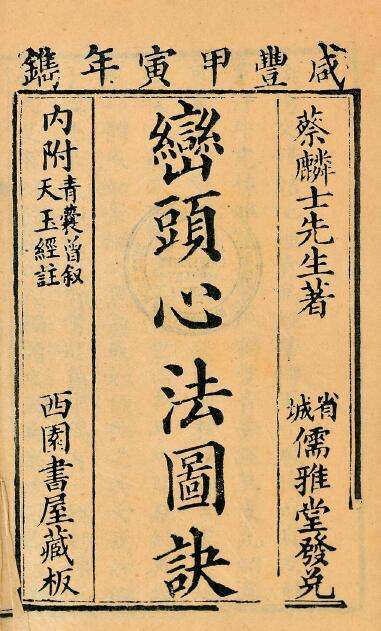 咸豐甲寅年鐫
蔡麟士先生著
省城儒雅堂發兌
巒頭心法圖訣
內附青囊曾叙
天玉經註
西園書屋藏板